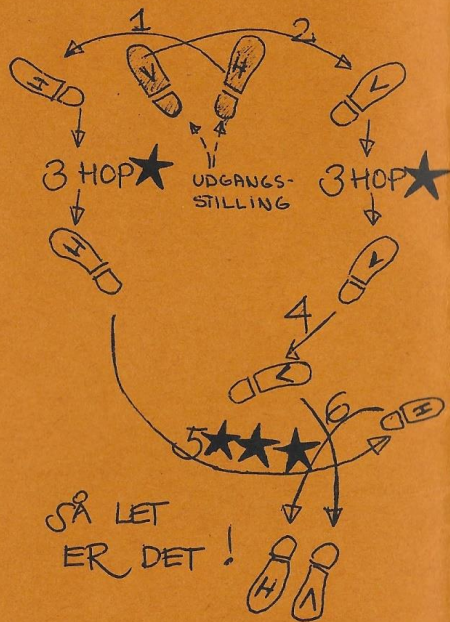 1
2
H
V
H
V
3 HOP
UDGANGS-
STILLING
3 HOP
H
V
4
V
6
H
5
SÅ LET
ER DET !
H
V